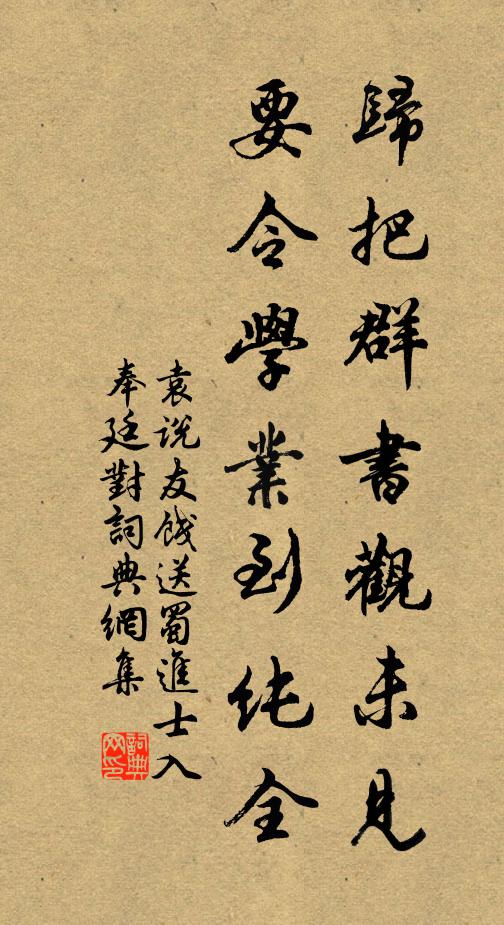 歸把群書觀未見
要令學業到純全
袁說友餞送蜀進士入
奉廷對詞典網集
詞典
网印